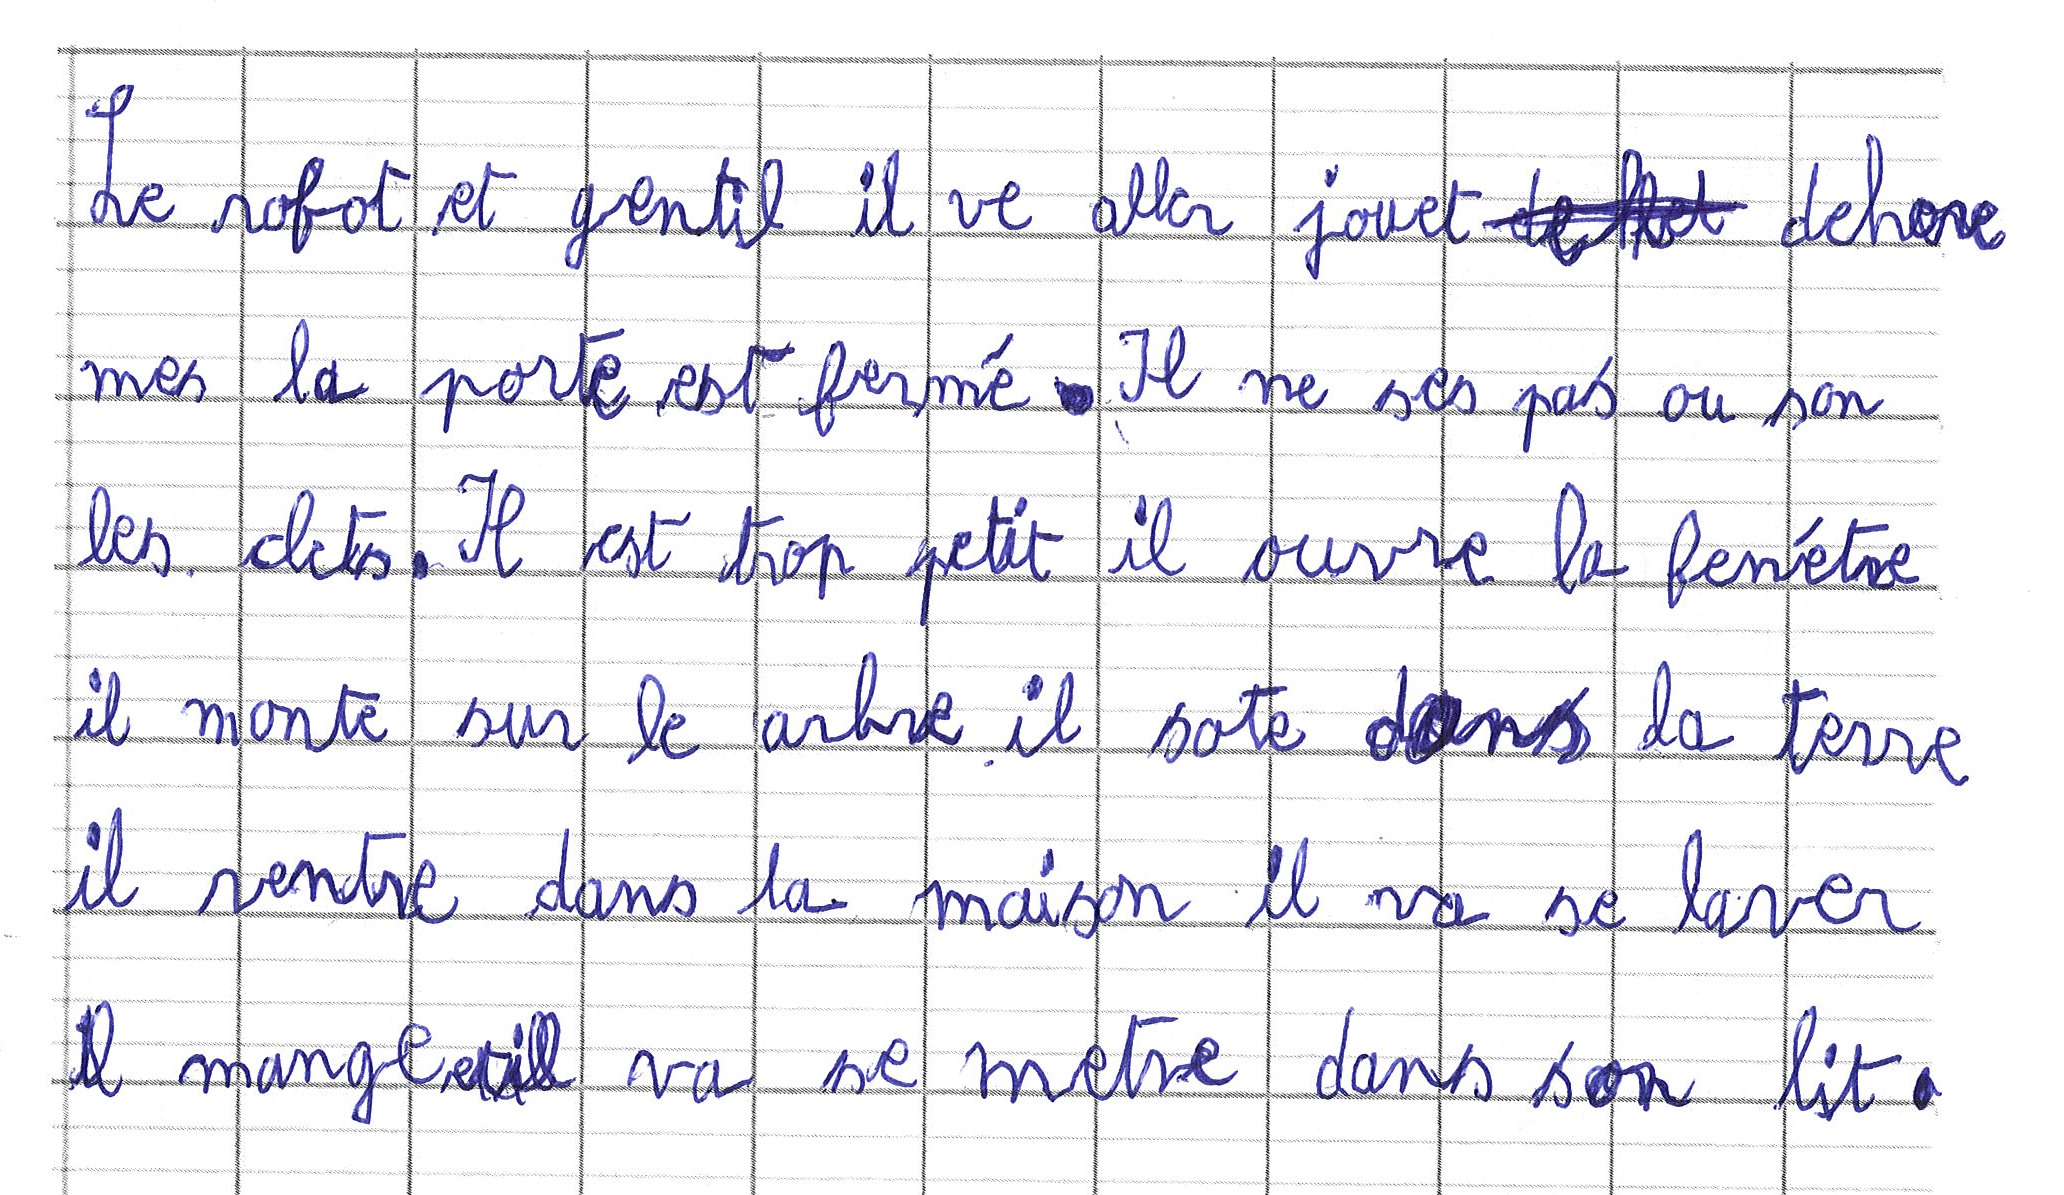 Le robot et gentil il ve aller jouet dehore
mes la porte est fermé. Il ne ses pas ou son
les clets. Il est trop petit il ouvre la fenétre
il monte sur le arbre il sote dans la terre
il rentre dans la maison il va se laver
Il mange et il va se metre dans son lit.